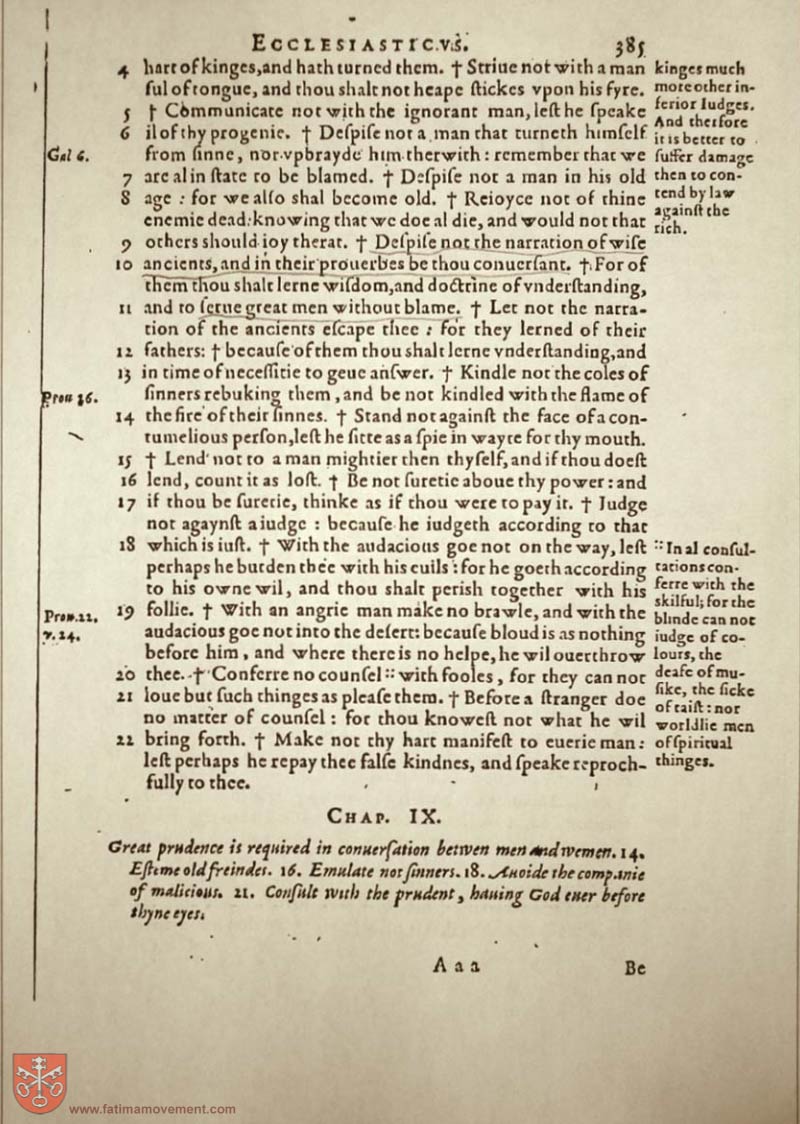 ECCLESIASTICVS. 385
4 hart of kinges, and hath turned them. † Striue not with a man
ful of tongue, and thou shalt not heape stickes vpon his fyre.
5 † Communicate not with the ignorant man, lest he speake
6 il of thy progenie. † Despise not a man that turneth himself
from sinne, nor vpbrayde him therwith: remember that we
7 are al in state to be blamed. † Despise not a man in his old
8 age: for we also shal become old. † Reioyce not of thine
enemie dead: knowing that we doe al die, and would not that
9 others should ioy therat. † Despise not the narration of wise
10 ancients, and in their prouerbes be thou conuersant. † For of
them thou shalt lerne wisdom, and doctrine of vnderstanding,
11 and to serue great men without blame. † Let not the narra-
tion of the ancients escape thee: for they lerned of their
12 fathers: † because of them thou shalt lerne vnderstanding, and
13 in time of necessitie to geue answer. † Kindle not the coles of
sinners rebuking them, and be not kindled with the flame of
14 the fire of their sinnes. † Stand not against the face of a con-
tumelious person, lest he sitte as a spie in wayte for thy mouth.
15 † Lend not to a man mightier then thyself, and if thou doest
16 lend, count it as lost. † Be not suretie aboue thy power: and
17 if thou be suretie, thinke as if thou were to pay it. † Judge
not agaynst a iudge: because he iudgeth according to that
18 which is iust. † With the audacious goe not on the way, lest
perhaps he burden thee with his euils: for he goeth according
to his owne wil, and thou shalt perish together with his
19 follie. † With an angrie man make no brawle, and with the
audacious goe not into the desert: because bloud is as nothing
before him, and where there is no helpe, he wil ouerthrow
20 thee. † Conferre no counsel :: with fooles, for they can not
21 loue but such thinges as please them. † Before a stranger doe
no matter of counsel: for thou knowest not what he wil
22 bring forth. † Make not thy hart manifest to euerie man:
lest perhaps he repay thee false kindnes, and speake reproch-
fully to thee.
Gal 6.
Prou 26.
Prou. 22.
v. 24.
kinges much
more other in-
ferior Iudges.
And therfore
it is better to
suffer damage
then to con-
tend by law
against the
rich.
:: In al consul-
tations con-
ferre with the
skilful; for the
blinde can not
iudge of co-
lours, the
deafe of mu-
sike, the sicke
of taist: nor
worldlie men
of spiritual
thinges.
CHAP. IX.
Great prudence is required in conuersation betwen men and wemen. 14.
Esteme old freindes. 16. Emulate not sinners. 18. Auoide the companie
of malicious. 21. Consult with the prudent, hauing God euer before
thyne eyes.
Aaa Be
www.fatimamovement.com